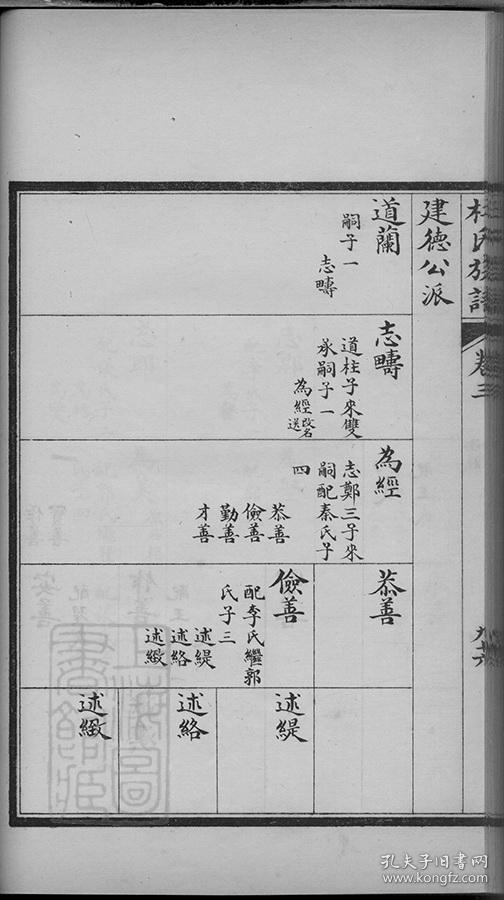 杜氏族譜
卷三
九十六
建德公派
道蘭
嗣子一
志疇
志疇
道柱子來雙
承嗣子一
為經改名送
為經
志鄭三子來
嗣配秦氏子
四
恭善
儉善
勤善
才善
恭善
儉善
配李氏繼郭
氏子三
述緹
述絡
述緻
述緹
述絡
述緻
孔夫子旧书网
www.kongfz.com